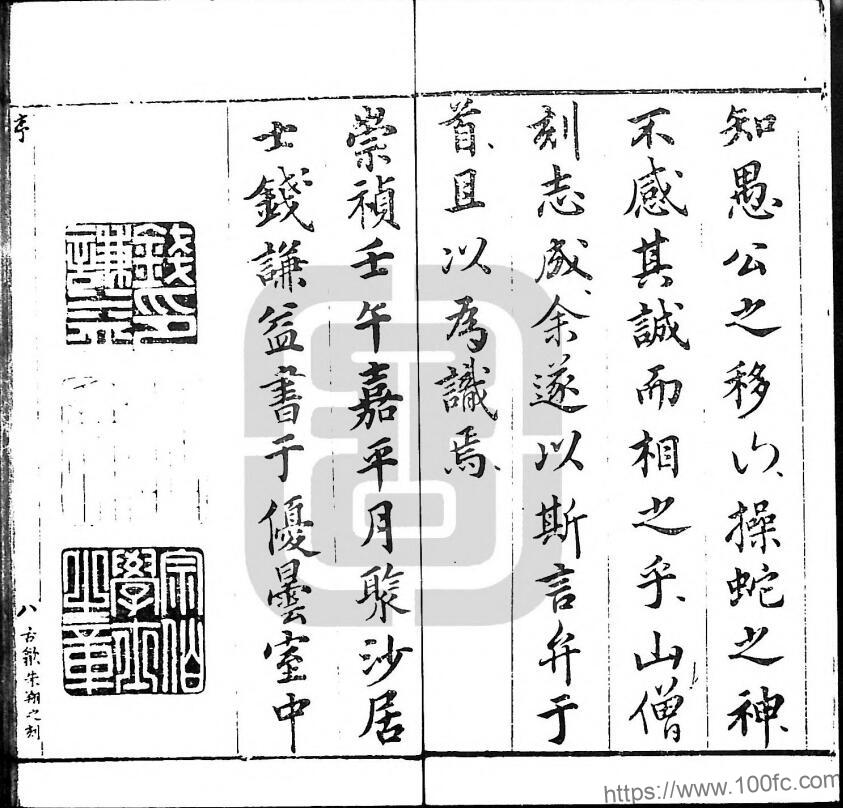 知愚公之移山、操蛇之神、
不感其誠而相之乎、山僧
刻志成、余遂以斯言弁于
首、且以為識焉、
崇禎壬午嘉平月聚沙居
士錢謙益書于優曇室中
錢印
謙益
序
八 古歙朱翔之刻
https://www.100fc.com